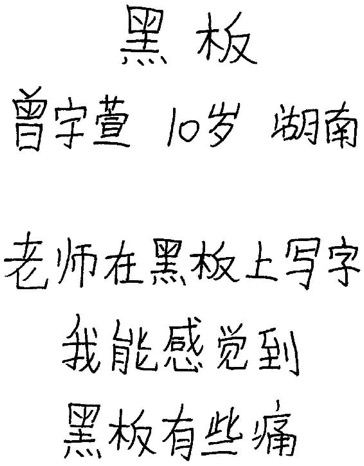 黑板
曾字萱 10岁 湖南
老师在黑板上写字
我能感觉到
黑板有些痛